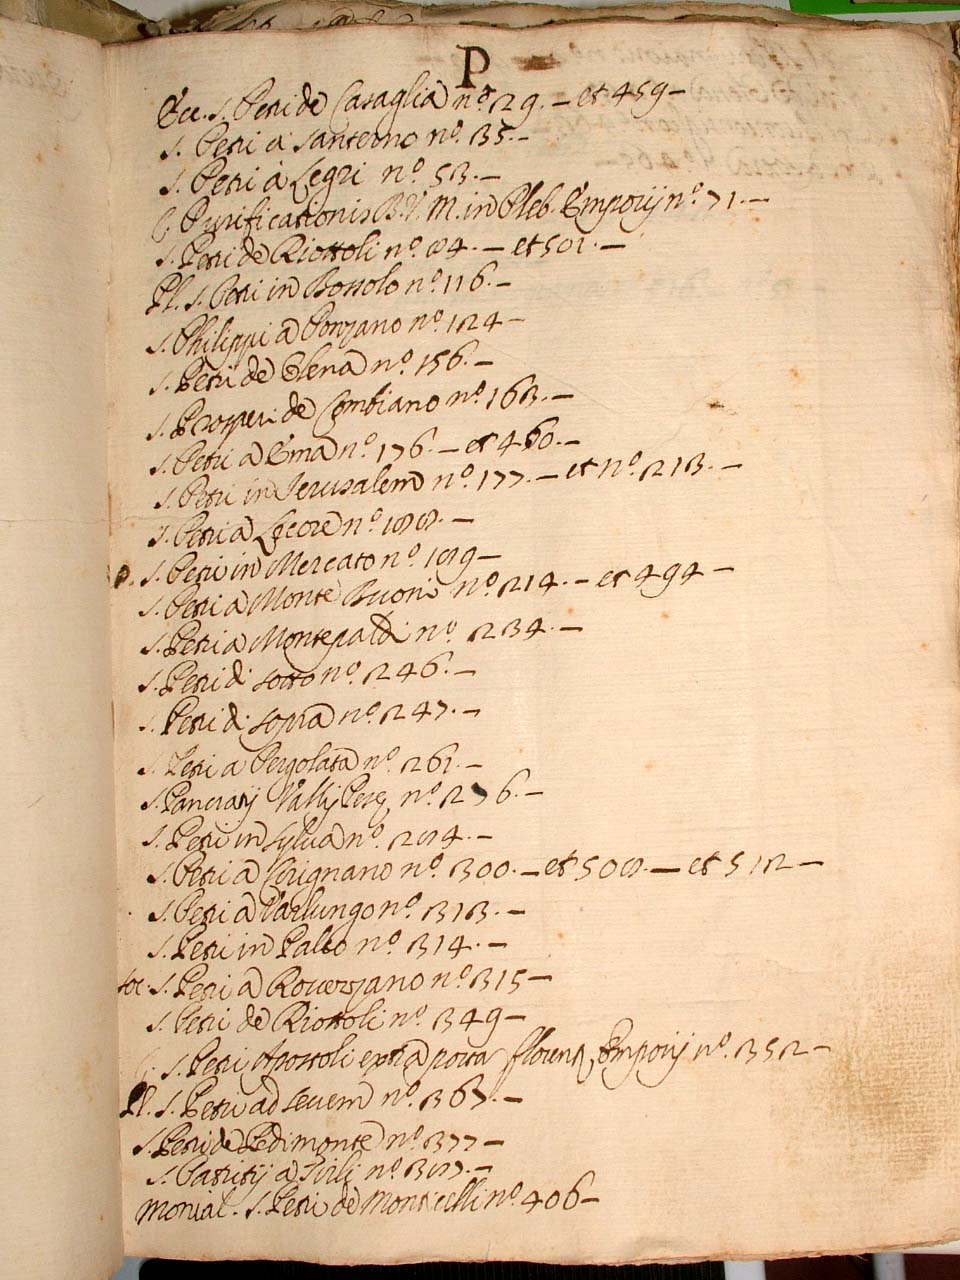 P.
Ecc. S. Petri de Casaglia nº 29. – et 459 –
S. Petri à Santerno nº. 35. –
S. Petri à Legri nº. 53. –
Purificationis B. V. M. in Pleb. Emporij nº. 71. –
S. Petri de Riottoli nº. 84. – et 501. –
Pl. S. Petri in Bossolo nº. 116. –
S. Philippi a Ponzano nº. 124 –
S. Petri de Elena nº. 156. –
S. Prosperi de Combiano nº. 163. –
S. Petri a Ema nº. 176. – et 460. –
S. Petri in Jerusalem nº. 177. – et nº. 213. –
S. Petri a Lecore nº. 188. –
P. S. Petri in Mercato nº. 189 –
S. Petri a Monte Buoni nº. 214. – et 494 –
S. Petri a Montepaldi nº 234. –
S. Petri di sotto nº. 246. –
S. Petri di sopra nº. 247. –
S. Petri a Pergolata nº. 261. –
S. Pancratij Vallis Pese nº. 276. –
S. Petri in Sylva nº. 284. –
S. Petri a Cirignano nº. 300. – et 508. – et 512 –
S. Petri a Varlungo nº. 313. –
S. Petri in Palco nº. 314. –
S. Petri a Rouezzano nº. 315 –
S. Petri de Riottoli nº. 349 –
S. Petri Apostoli extra porta florent. Emporij nº. 352 –
Pl. S. Petri ad Sevem nº. 367. –
S. Petri de Pedimonte nº. 377 –
S. Patritij a nº. 387. –
Monial. S. Petri de Monticelli nº. 406 –